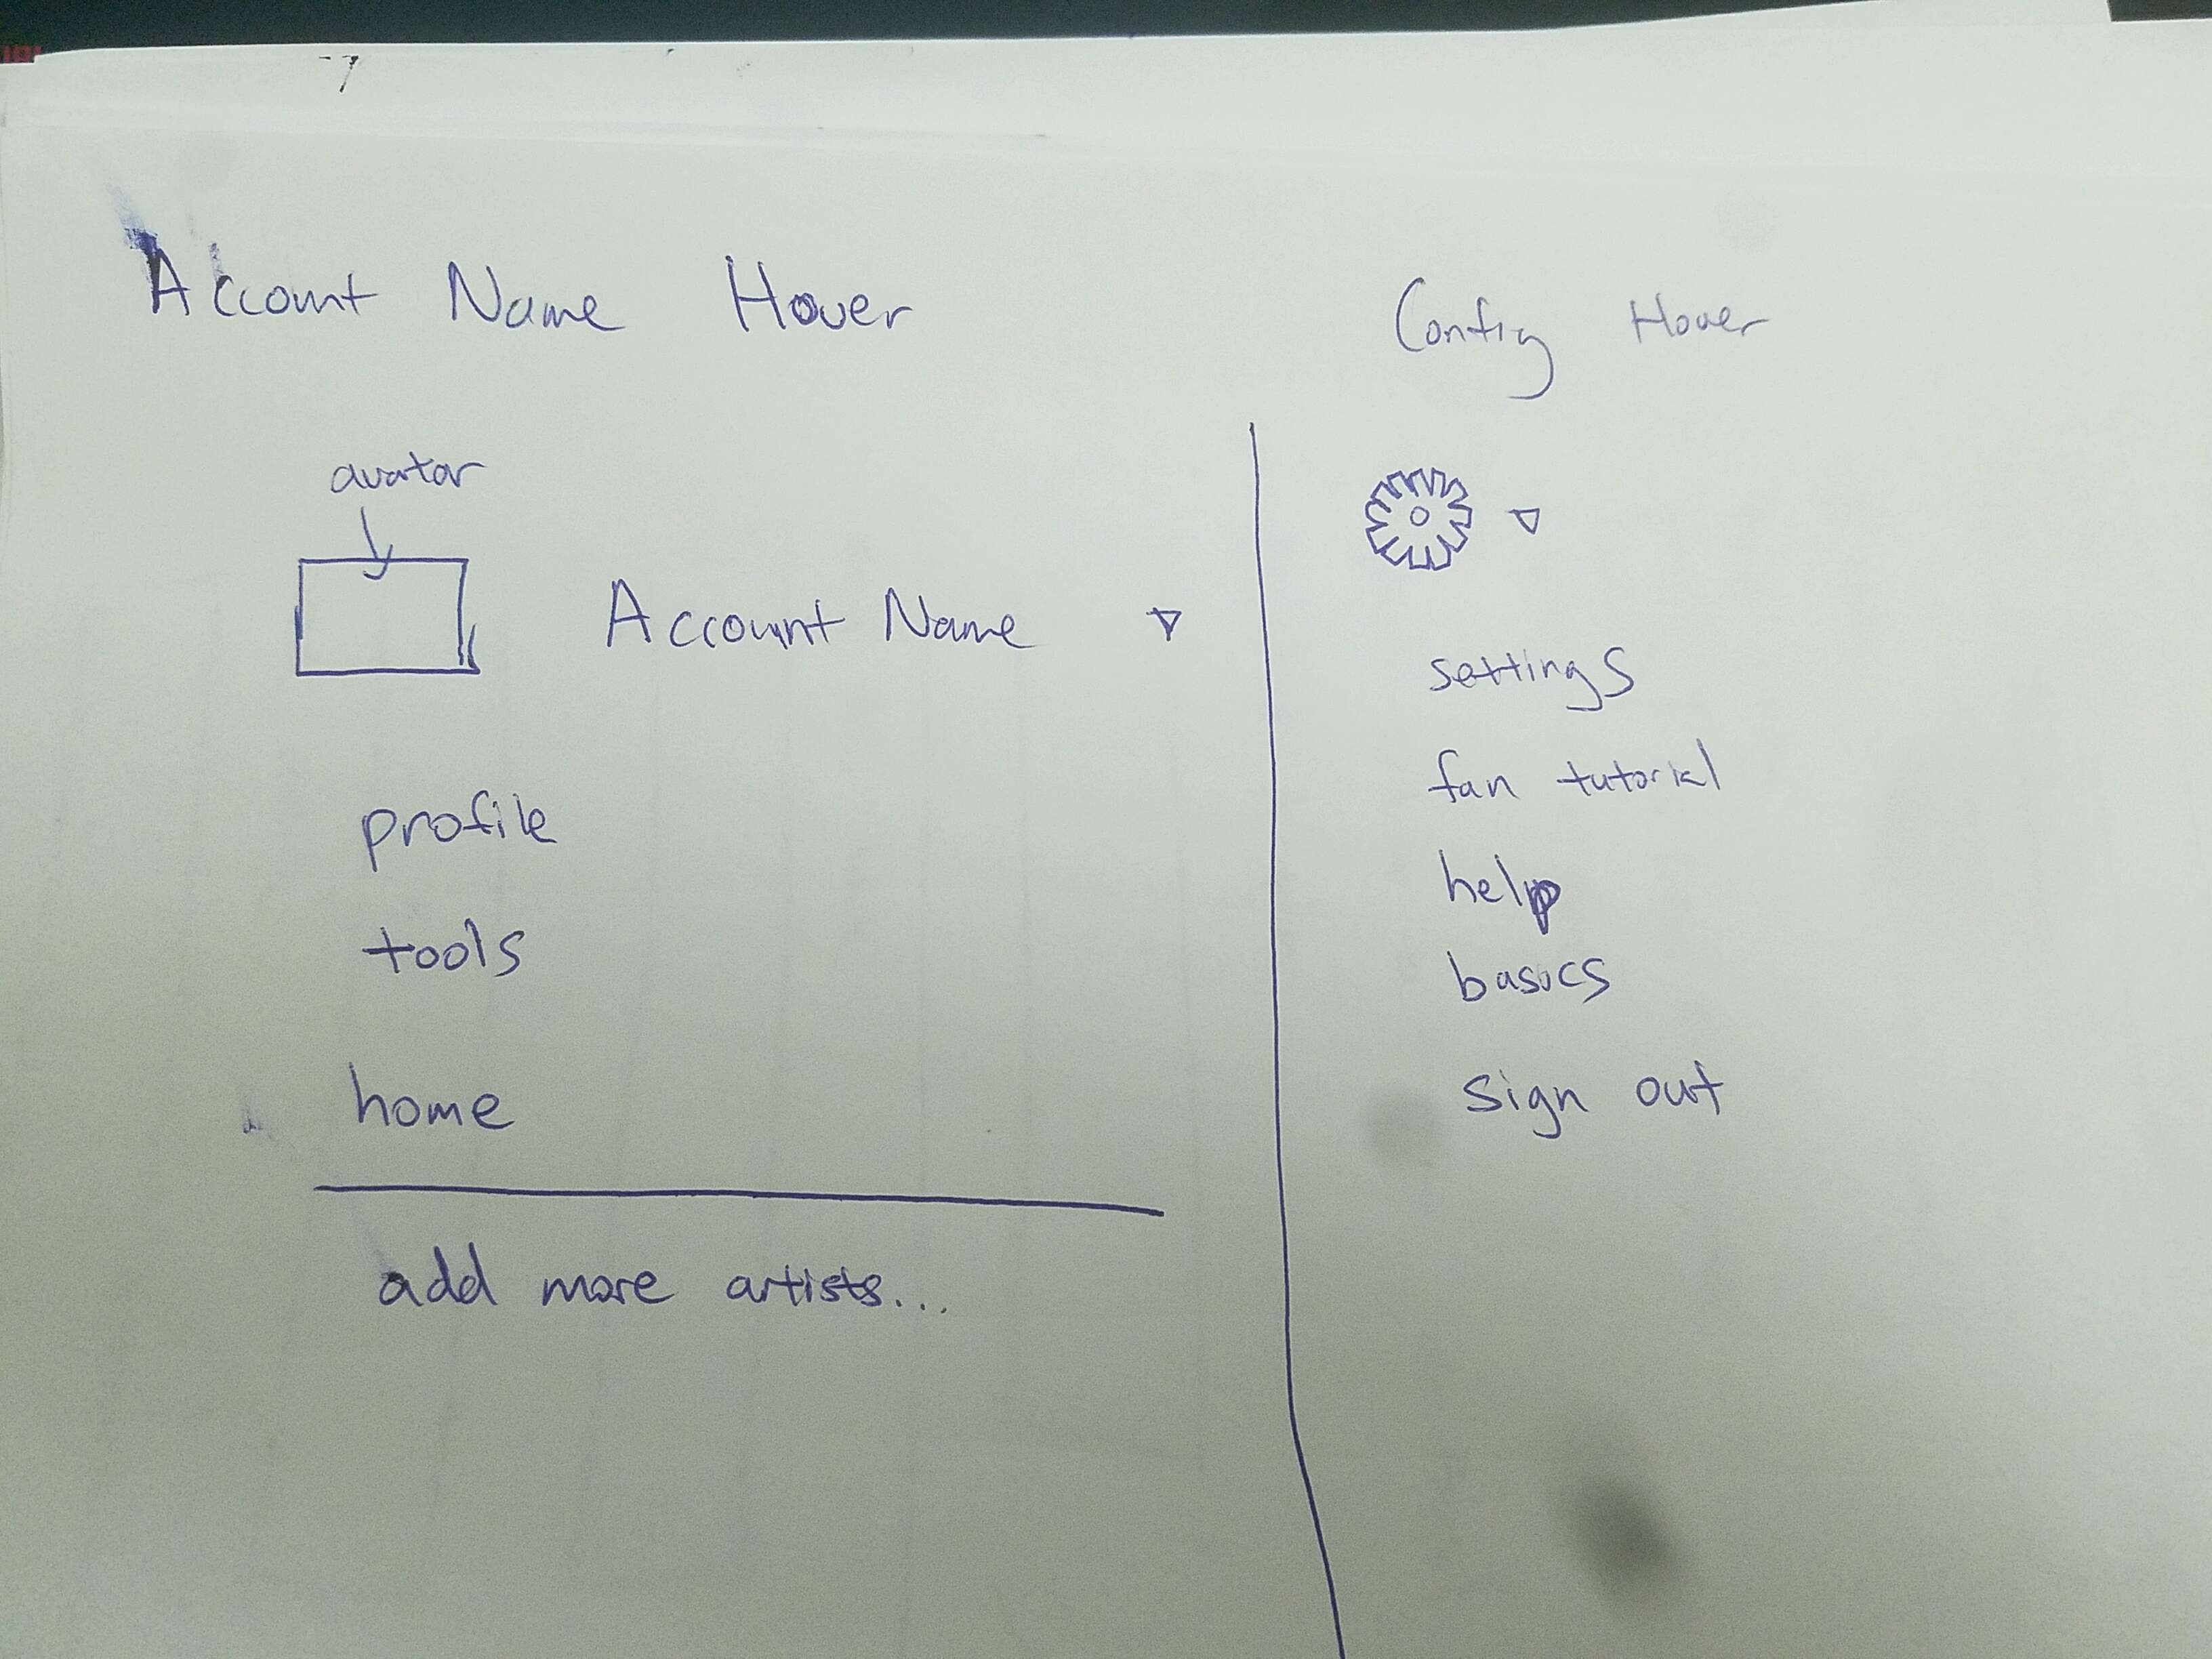 Account Name Hover
avatar
Account Name
profile
tools
home
add more artists...
Config Hover
settings
fan tutorial
help
basics
sign out